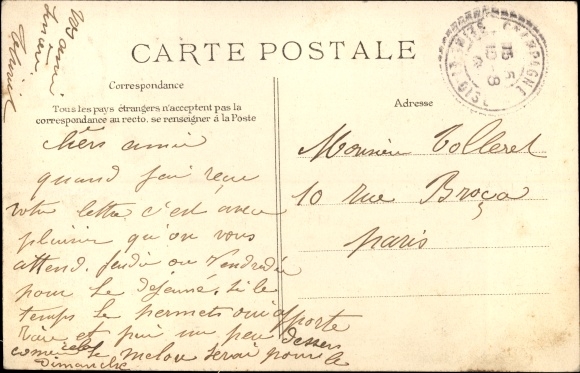 CARTE POSTALE
Correspondance
Tous les pays étrangers n'acceptent pas la
correspondance au recto. se renseigner à la Poste
Adresse
chèrs amis
quand j'ai reçue
votre lettre c'est avec
plaisir qu'on vous
attend. jeudi ou Vendredie
pour le déjeune. si le
temps le permets
et puis un peu
le melon serai pour le
Dimanche
Vos amis
Monsieur Tolleret
10 rue Broca
Paris